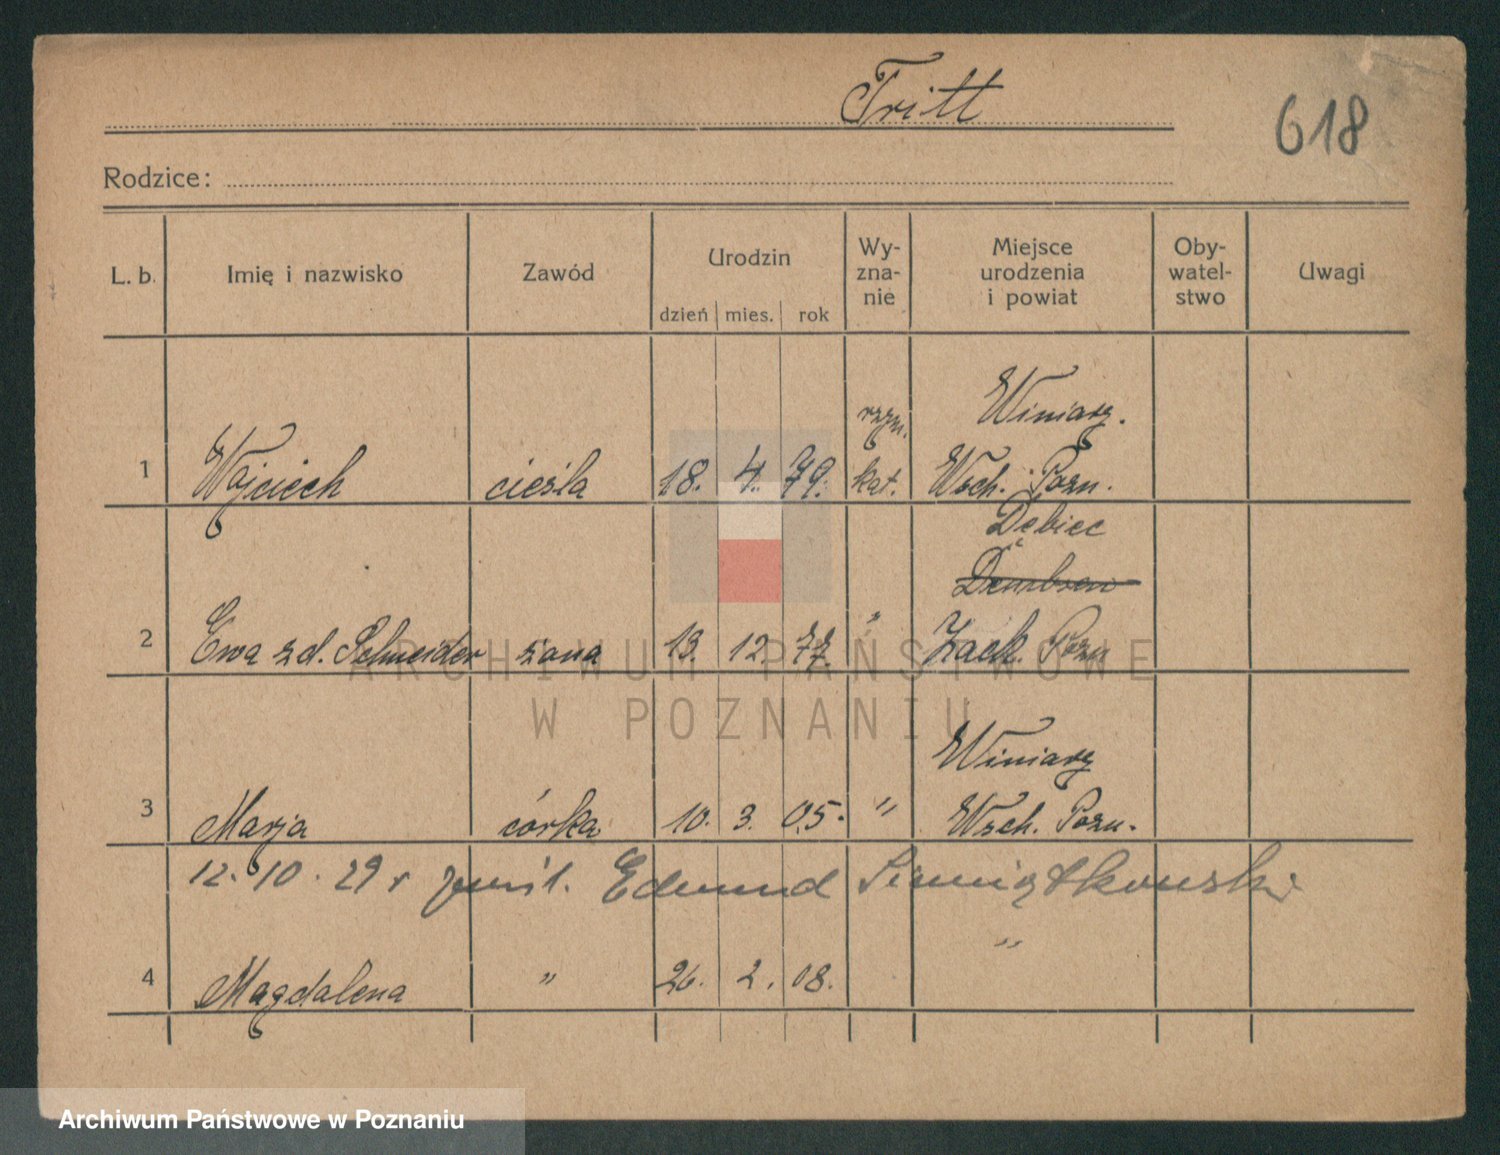 Tritt
618
Rodzice:
L. b. Imię i nazwisko Zawód Urodzin dzień mies. rok Wy-zna-nie Miejsce urodzenia i powiat Oby-watel-stwo Uwagi
Winiary.
rzym.
1 Wojciech cieśla 18. 4. 79. kat. Wsch. Pozn.
Dębiec
Dembsen
2 Ewa z d. Schneider żona 13. 12. 77. " Zach. Pozn
ARCHIWUM PAŃSTWOWE
W POZNANIU
Winiary
3 Marja córka 10. 3. 05. " Wsch. Pozn.
12. 10. 29 r Edmund Siemiątkowski
4 Magdalena " 26. 2. 08. "
Archiwum Państwowe w Poznaniu